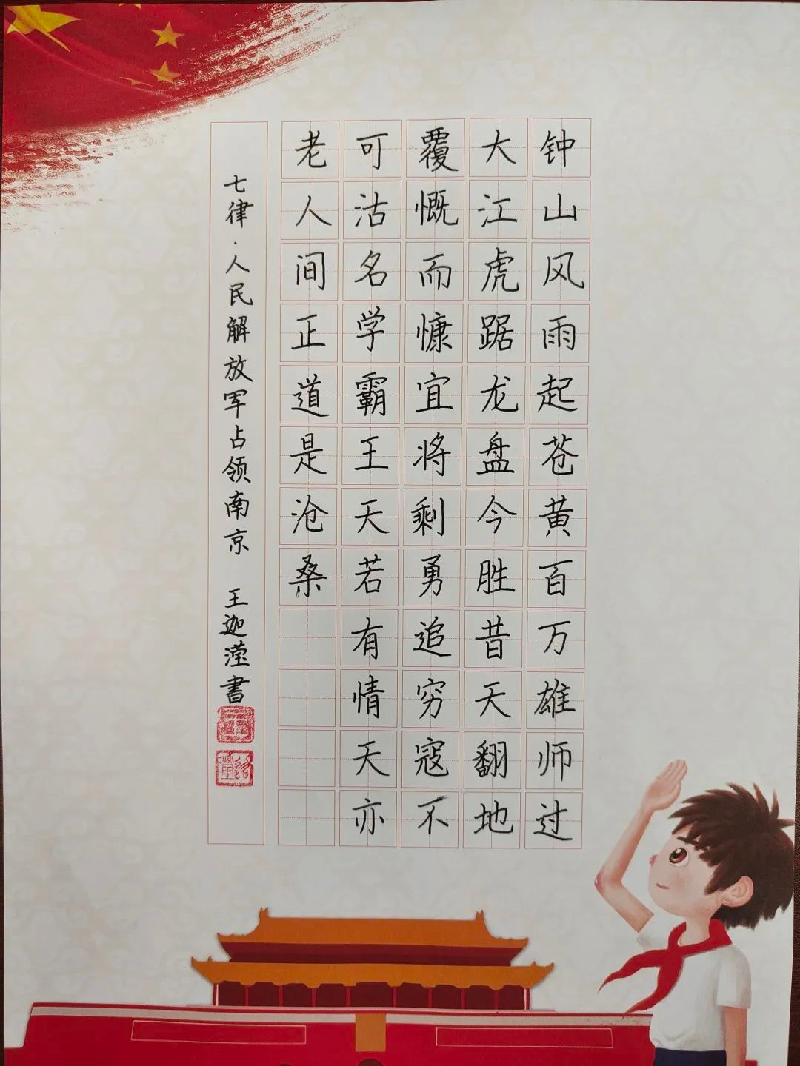 钟山风雨起苍黄百万雄师过
大江虎踞龙盘今胜昔天翻地
覆慨而慷宜将剩勇追穷寇不
可沽名学霸王天若有情天亦
老人间正道是沧桑
七律·人民解放军占领南京 王迦滢書